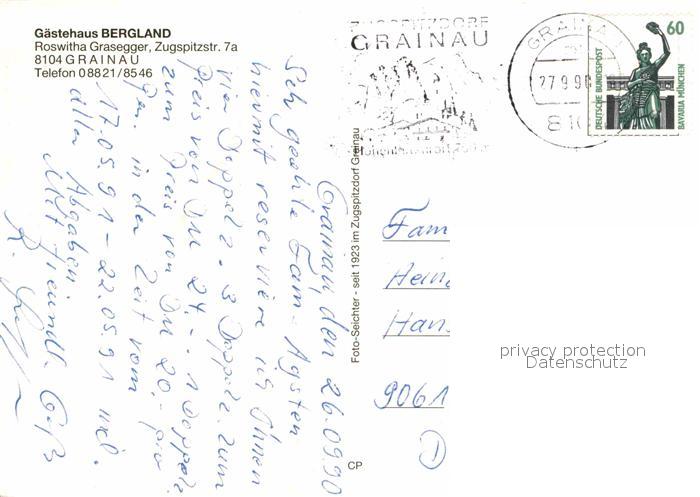 Gästehaus BERGLAND
Roswitha Grasegger, Zugspitzstr. 7a
8104 GRAINAU
Telefon 08821/8546
ZUGSPITZDORF
GRAINAU
GRAINAU
27.9.90
810
60
DEUTSCHE BUNDESPOST
BAVARIA MÜNCHEN
Grainau den 26.09.90
Seh geehrte Fam. Agsten
hiermit reserviere ich Ihnen
vier Doppelz. 3 Doppelz. zum
Preis von DM 24,- 1 Doppelz.
zum Preis von DM 20,- pro
Pers. in der Zeit vom
17.05.91 - 22.05.91 inkl.
aller Abgaben.
Mit freundl. Gruß
R.
Foto-Seichter - seit 1923 im Zugspitzdorf Grainau
CP
Fam
Hein
Han
9061
D
privacy protection
Datenschutz